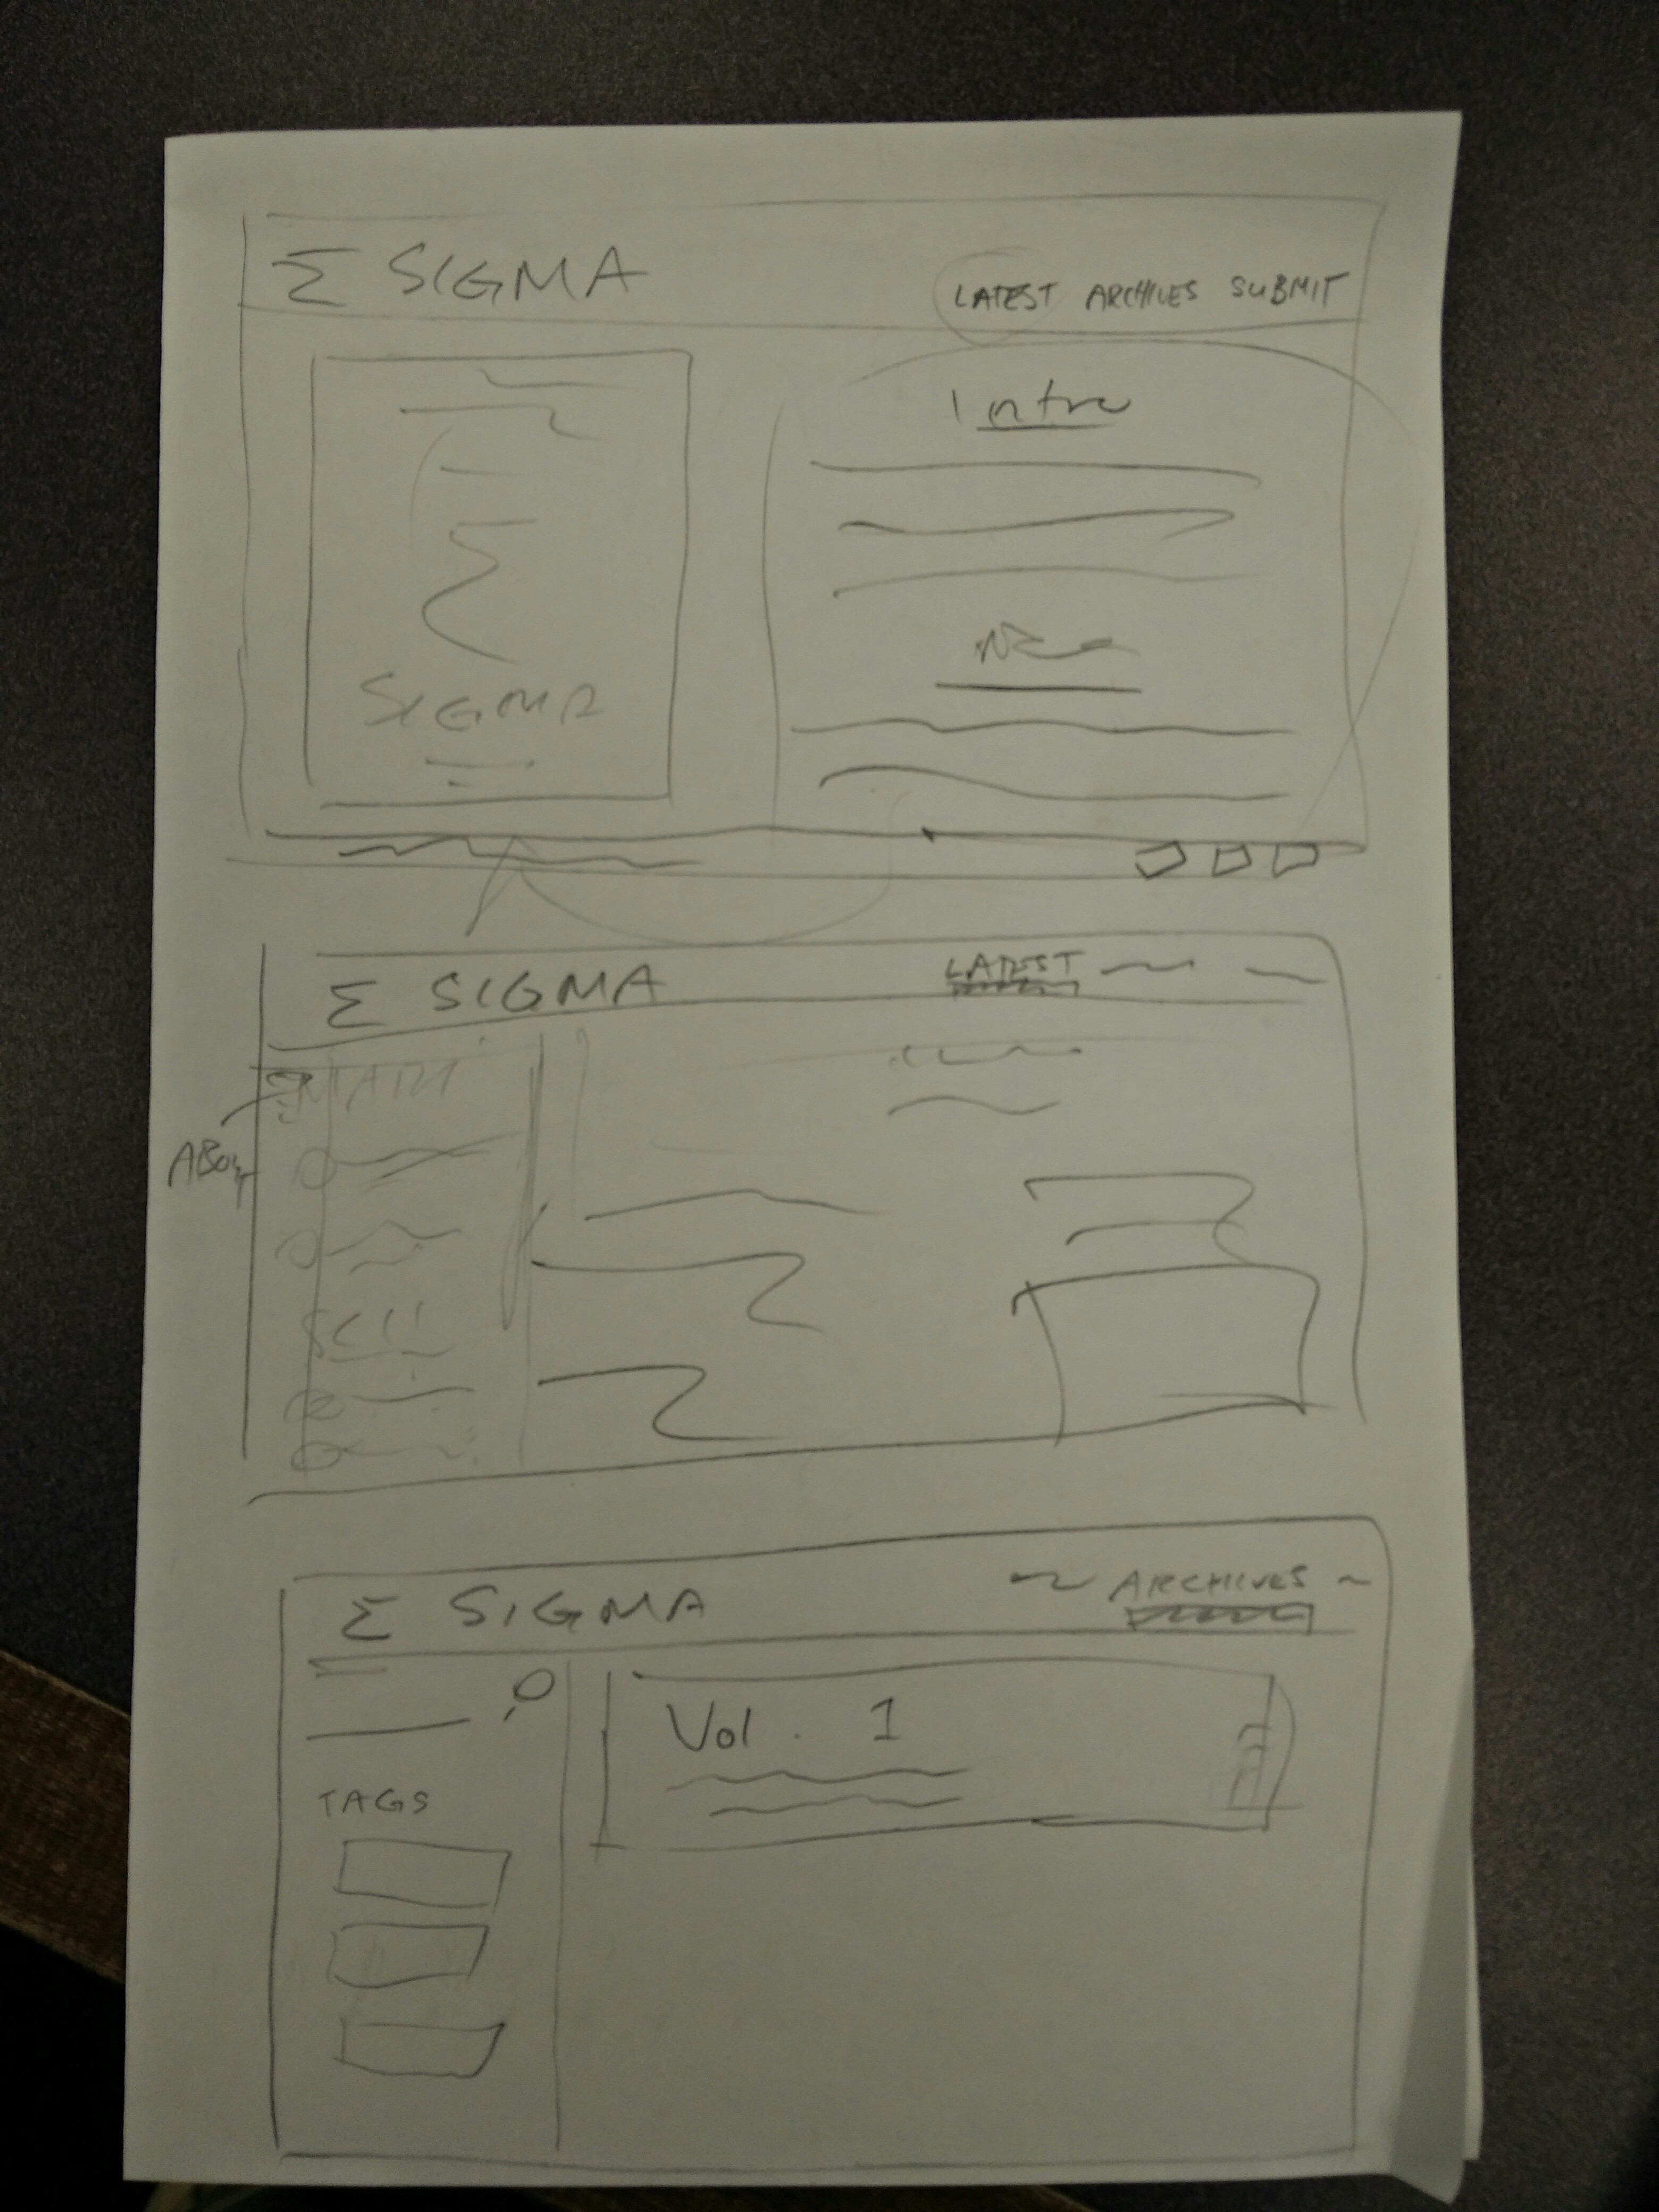 Σ SIGMA LATEST ARCHIVES SUBMIT
Intro
Σ
SIGMA
Σ SIGMA LATEST
MATH
ABOUT
SCI
Σ SIGMA ARCHIVES
Vol. 1
TAGS